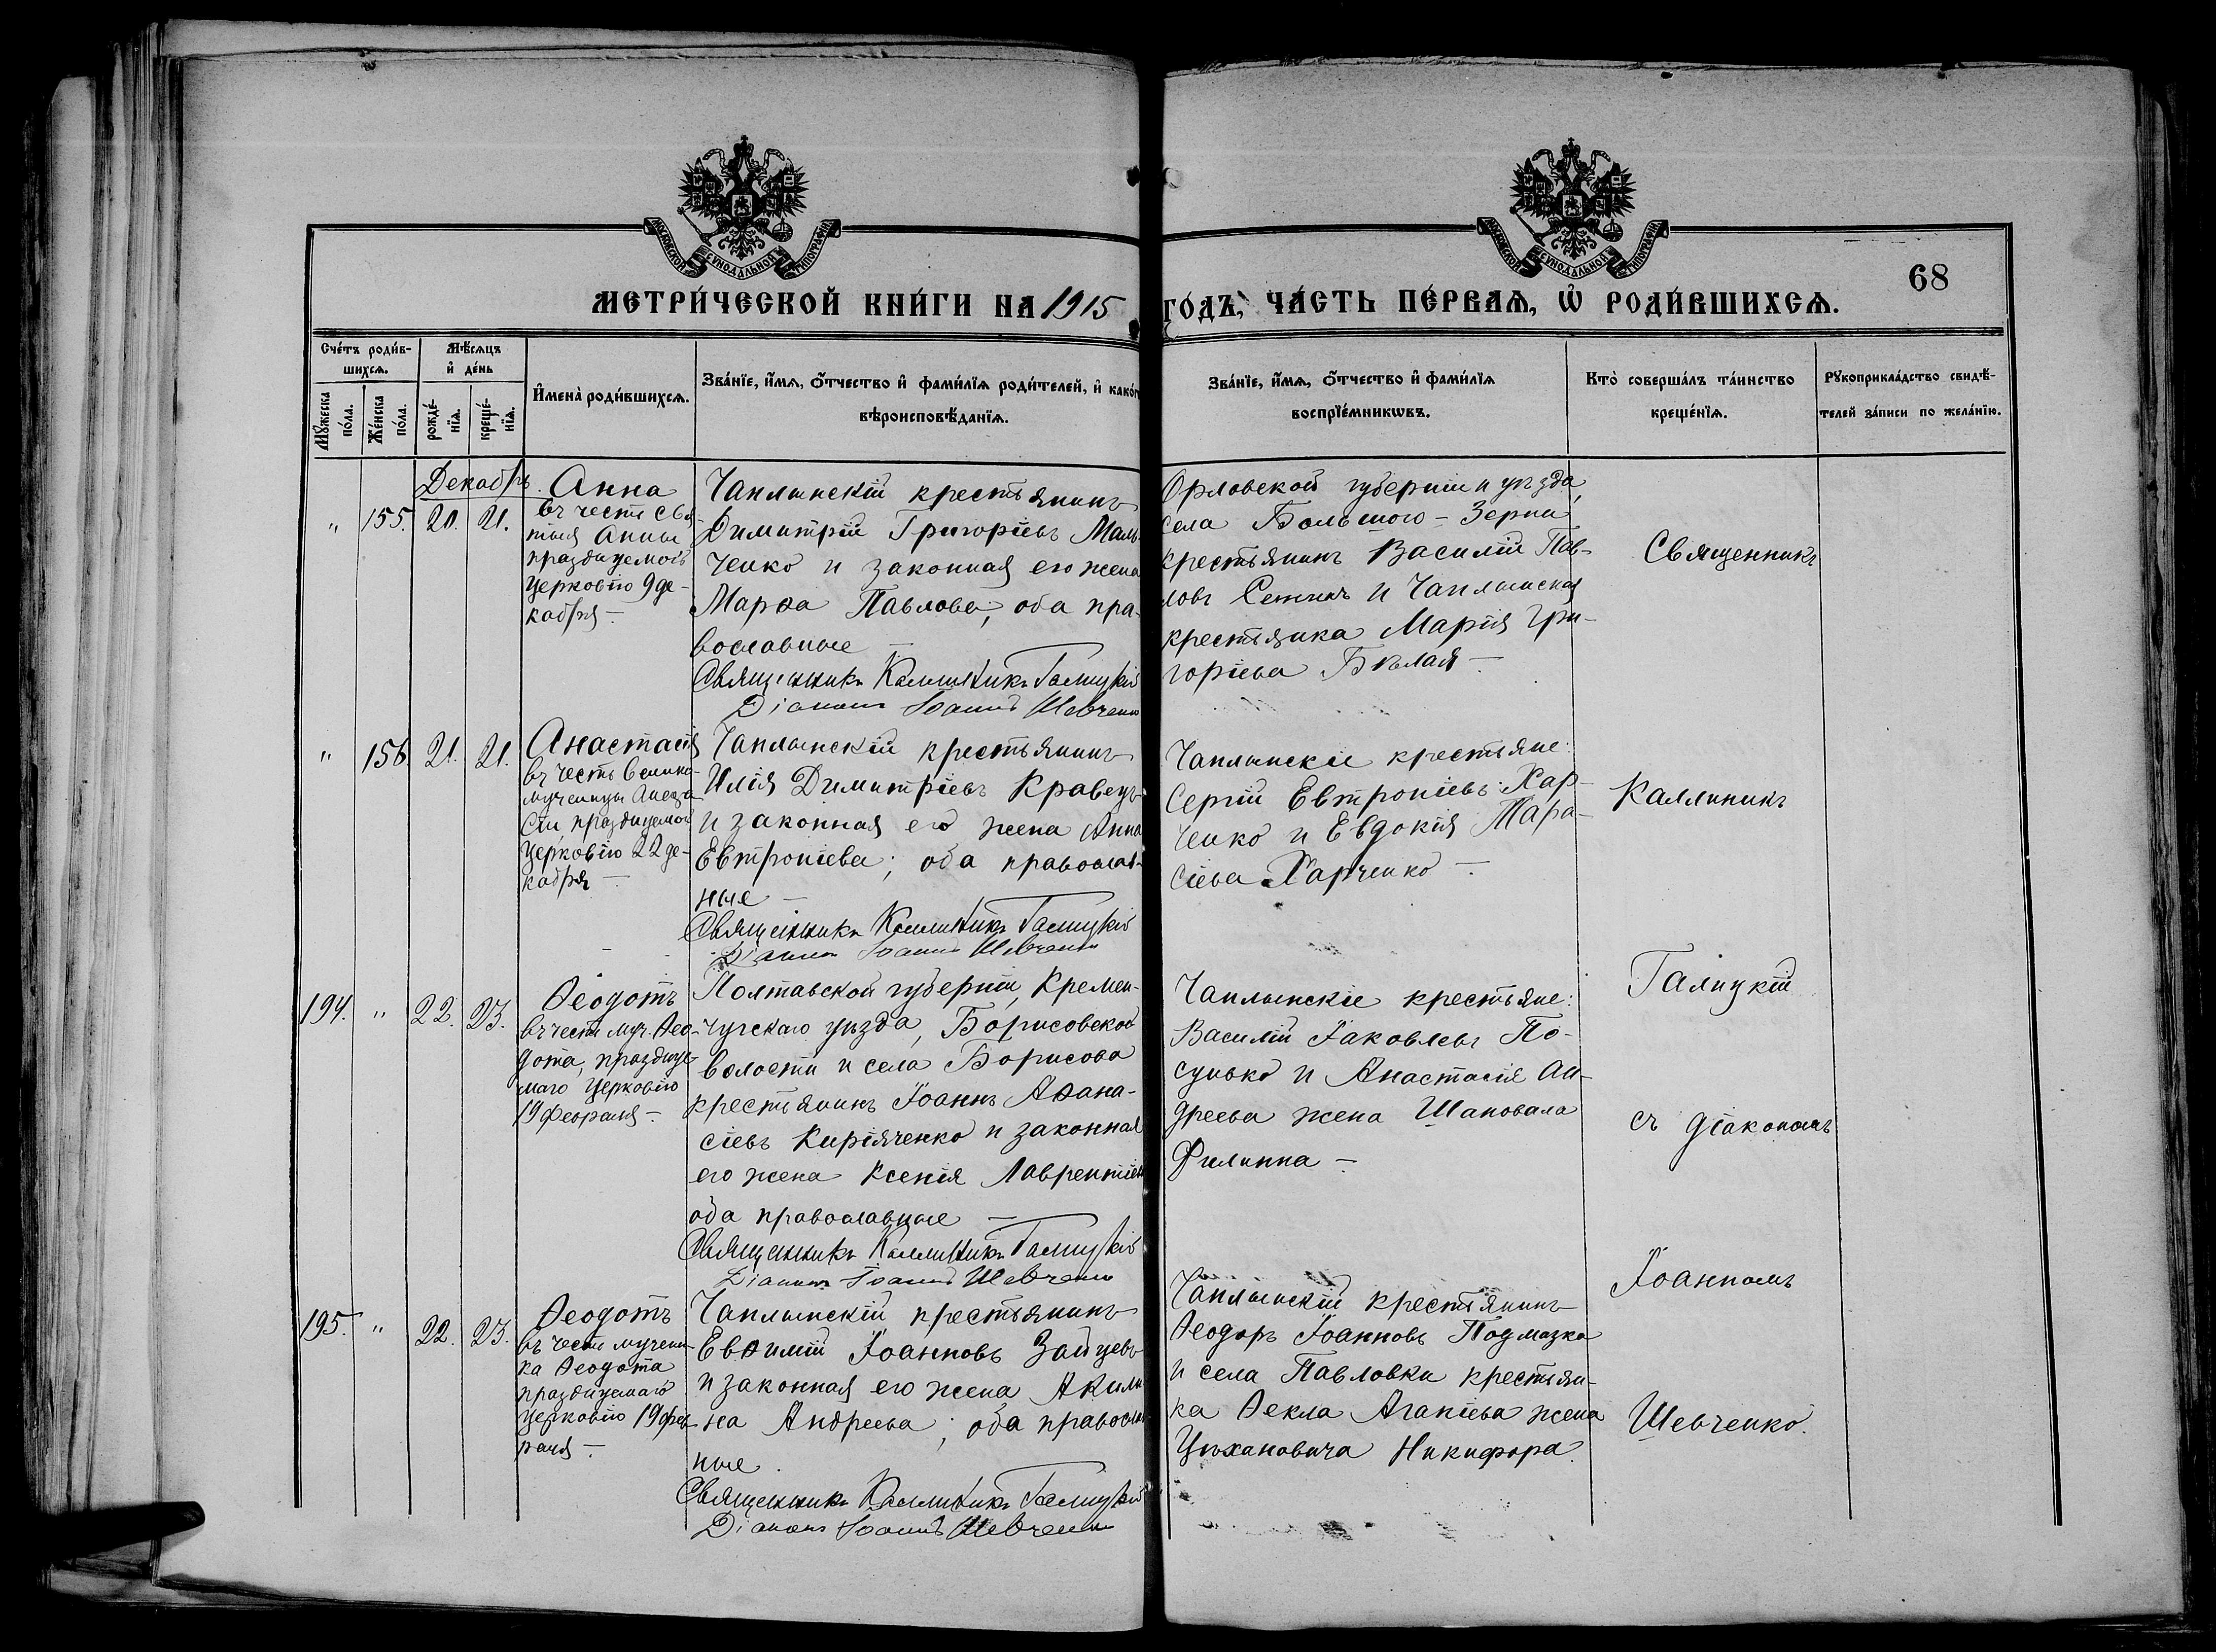 МОСКОВСКОЙ СѴНОДАЛЬНОЙ ТИПОГРАФІИ
МОСКОВСКОЙ СѴНОДАЛЬНОЙ ТИПОГРАФІИ
68
МЕТРИ́ЧЕСКОЙ КНИ́ГИ НА 1915 ГО́ДЪ, ЧА́СТЬ ПЕ́РВАѦ, Ѡ҆ РОДИ́ВШИХСѦ.
Сче́тъ роди́в-
шихсѧ.
Мѣ́сѧцъ
и҆ де́нь
Мꙋ́жеска
по́ла.
Же́нска
по́ла.
рожде́-
нїѧ.
креще́-
нїѧ.
И҆мена̀ роди́вшихсѧ.
Зва́нїе, и҆́мѧ, ѻ҆́тчество и҆ фами́лїѧ роди́телей, и҆ како́гѡ
вѣроисповѣ́данїѧ.
Зва́нїе, и҆́мѧ, ѻ҆́тчество и҆ фами́лїѧ
воспрїе́мникѡвъ.
Кто̀ соверша́лъ та́инство
креще́нїѧ.
Рꙋкоприкла́дство свидѣ́-
телей за́писи по жела́нїю.
Декабрь.
" 155. 20. 21.
Анна
въ честь свя-
тыя Анны
празднуемой
церковію 9 де-
кабря —
Чаплынскій крестьянинъ
Димитрій Григоріевъ Маль-
ченко и законная его жена
Марѳа Павлова; оба пра-
вославные —
Священникъ Каллиникъ Галицкій
Діаконъ Іоаннъ Шевченко
Орловской губерніи и уѣзда,
села Большого-Зерни
крестьянинъ Василій Пав-
ловъ и Чаплынская
крестьянка Марія Гри-
горіева Бѣлая —
Священникъ
" 156. 21. 21.
Анастасія
въ честь велико-
мученицы Анаста-
сіи празднуемой
церковію 22 де-
кабря —
Чаплынскій крестьянинъ
Илія Димитріевъ Кравецъ
и законная его жена Анна
Евтропіева; оба православ-
ные —
Священникъ Каллиникъ Галицкій
Діаконъ Іоаннъ Шевченко
Чаплынскіе крестьяне:
Сергій Евтропіевъ Хар-
ченко и Евдокія Тара-
сіева Харченко —
Каллиникъ
194. " 22. 23.
Ѳеодотъ
въ честь муч. Ѳео-
дота, праздну-
маго церковію
19 февраля —
Полтавской губерніи, Кремен-
чугскаго уѣзда, Борисовской
волости и села Борисова
крестьянинъ Іоаннъ Аѳана-
сіевъ Киріяченко и законная
его жена Ксенія Лаврентіева
оба православные —
Священникъ Каллиникъ Галицкій
Діаконъ Іоаннъ Шевченко
Чаплынскіе крестьяне:
Василій Іаковлевъ По-
сунько и Анастасія Ан-
дреева жена Шаповала
Филиппа —
Галицкій
съ діакономъ
195. " 22. 23.
Ѳеодотъ
въ честь мучени-
ка Ѳеодота
празднуемаго
церковію 19 фев-
раля —
Чаплынскій крестьянинъ
Евѳимій Іоанновъ Зайцевъ
и законная его жена Акили-
на Андреева; оба православ-
ные.
Священникъ Каллиникъ Галицкій
Діаконъ Іоаннъ Шевченко
Чаплынскій крестьянинъ
Ѳеодоръ Іоанновъ Подмазка
и села Павловки крестьян-
ка Ѳекла Агапіева жена
Цыхановича Никифора.
Іоанномъ
Шевченко.